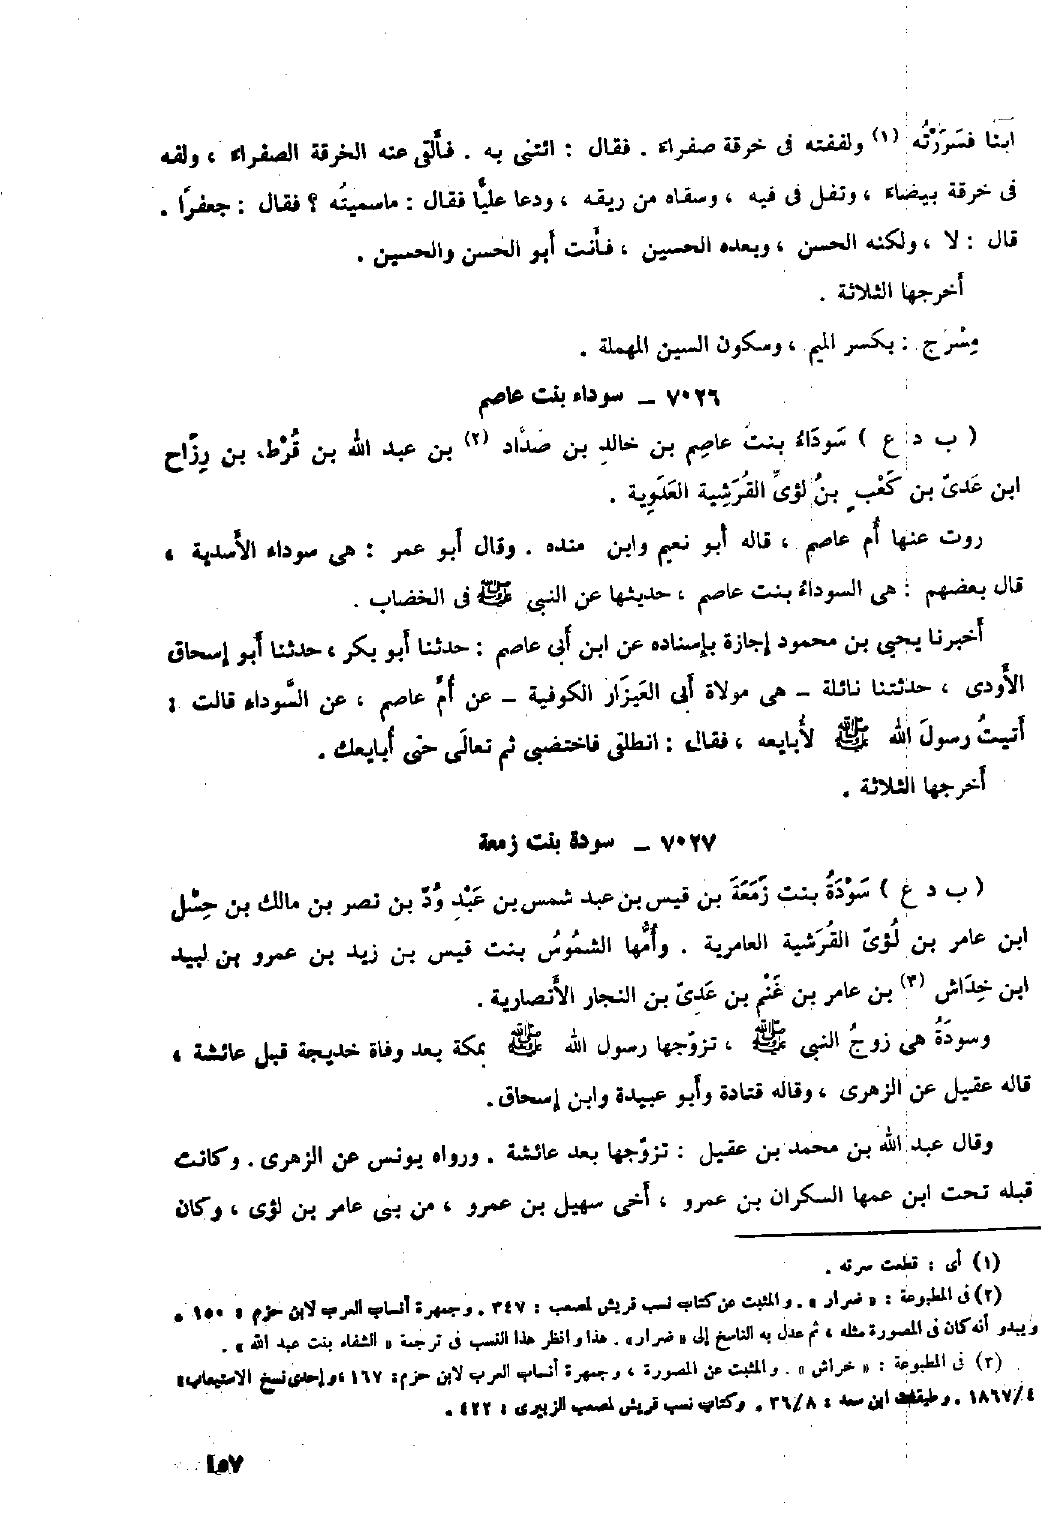 ابنا فَسَرَرْتُه (١) ولففته فى خرقة صفراء . فقال : ائتنى به . فألقى عنه الخرقة الصفراء ، ولفه
فى خرقة بيضاء ، وتفل فى فيه ، وسقاه من ريقه ، ودعا عليًّا فقال : ماسميتُه ؟ فقال : جعفرًا .
قال : لا ، ولكنه الحسن ، وبعده الحسين ، فأنت أبو الحسن والحسين .
أخرجها الثلاثة .
مِسْرَح : بكسر الميم ، وسكون السين المهملة .
٧٠٢٦ – سوداء بنت عاصم
( ب د ع ) سَودَاءُ بنت عاصِم بن خالدِ بن صَدَّاد (٢) بن عبد الله بن قُرْط بن رِزَّاح
ابن عَدىّ بن كَعْب بنُ لؤىِّ القُرَشِية العَدَوِية .
روت عنها أُم عاصم ، قاله أبو نعيم وابن منده . وقال أبو عمر : هى سوداء الأَسدية ،
قال بعضهم : هى السوداءُ بنت عاصم ، حديثها عن النبى ﷺ فى الخضاب .
أخبرنا يحيى بن محمود إجازة بإسناده عن ابن أَبى عاصم : حدثنا أَبو بكر ، حدثنا أَبو إسحاق
الأَودى ، حدثتنا نائلة – هى مولاة أَبى العَيزَار الكوفية – عن أُمّ عاصم ، عن السَّوداء قالت :
أَتيتُ رسولَ الله ﷺ لأُبايعه ، فقال : انطلقى فاختضبى ثم تعالَى حتى أُبايعك .
أَخرجها الثلاثة .
٧٠٢٧ – سودة بنت زمعة
( ب د ع ) سَوْدَةُ بنت زَمَعَةَ بن قيس بن عبد شمس بن عَبْدِ وُدّ بن نصر بن مالك بن حِسْل
ابن عامر بن لُؤىّ القُرَشية العامرية . وأُمُّها الشمُوسُ بنت قيس بن زيد بن عمرو بن لبيد
ابن خِدَاش (٣) بن عامر بن غَنْم بن عَدىّ بن النجار الأَنصارية .
وسودَةُ هى زوجُ النبى ﷺ ، تزوّجها رسول الله ﷺ بمكة بعد وفاة خديجة قبل عائشة ،
قاله عقيل عن الزهرى ، وقاله قتادة وأَبو عبيدة وابن إسحاق .
وقال عبد الله بن محمد بن عقيل : تزوّجها بعد عائشة . ورواه يونس عن الزهرى . وكانت
قبله تحت ابن عمها السكران بن عمرو ، أَخى سهيل بن عمرو ، من بنى عامر بن لؤى ، وكان
(١) أى : قطعت سرته .
(٢) فى المطبوعة : « ضرار » . والمثبت عن كتاب نسب قريش لمصعب : ٣٤٧ . وجمهرة أنساب العرب لابن حزم : ١٥٠ .
ويبدو أنه كان فى المصورة مثله ، ثم عدل به الناسخ إلى « ضرار » . هذا وانظر هذا النسب فى ترجمة « الشفاء بنت عبد الله » .
(٣) فى المطبوعة : « خراش » . والمثبت عن المصورة ، وجمهرة أنساب العرب لابن حزم : ١٦٧ ، وإحدى نسخ الاستيعاب :
٤/١٨٦٧ . وطبقات ابن سعد : ٣٦/٨ . وكتاب نسب قريش لمصعب الزبيرى : ٤٢٢ .
١٥٧